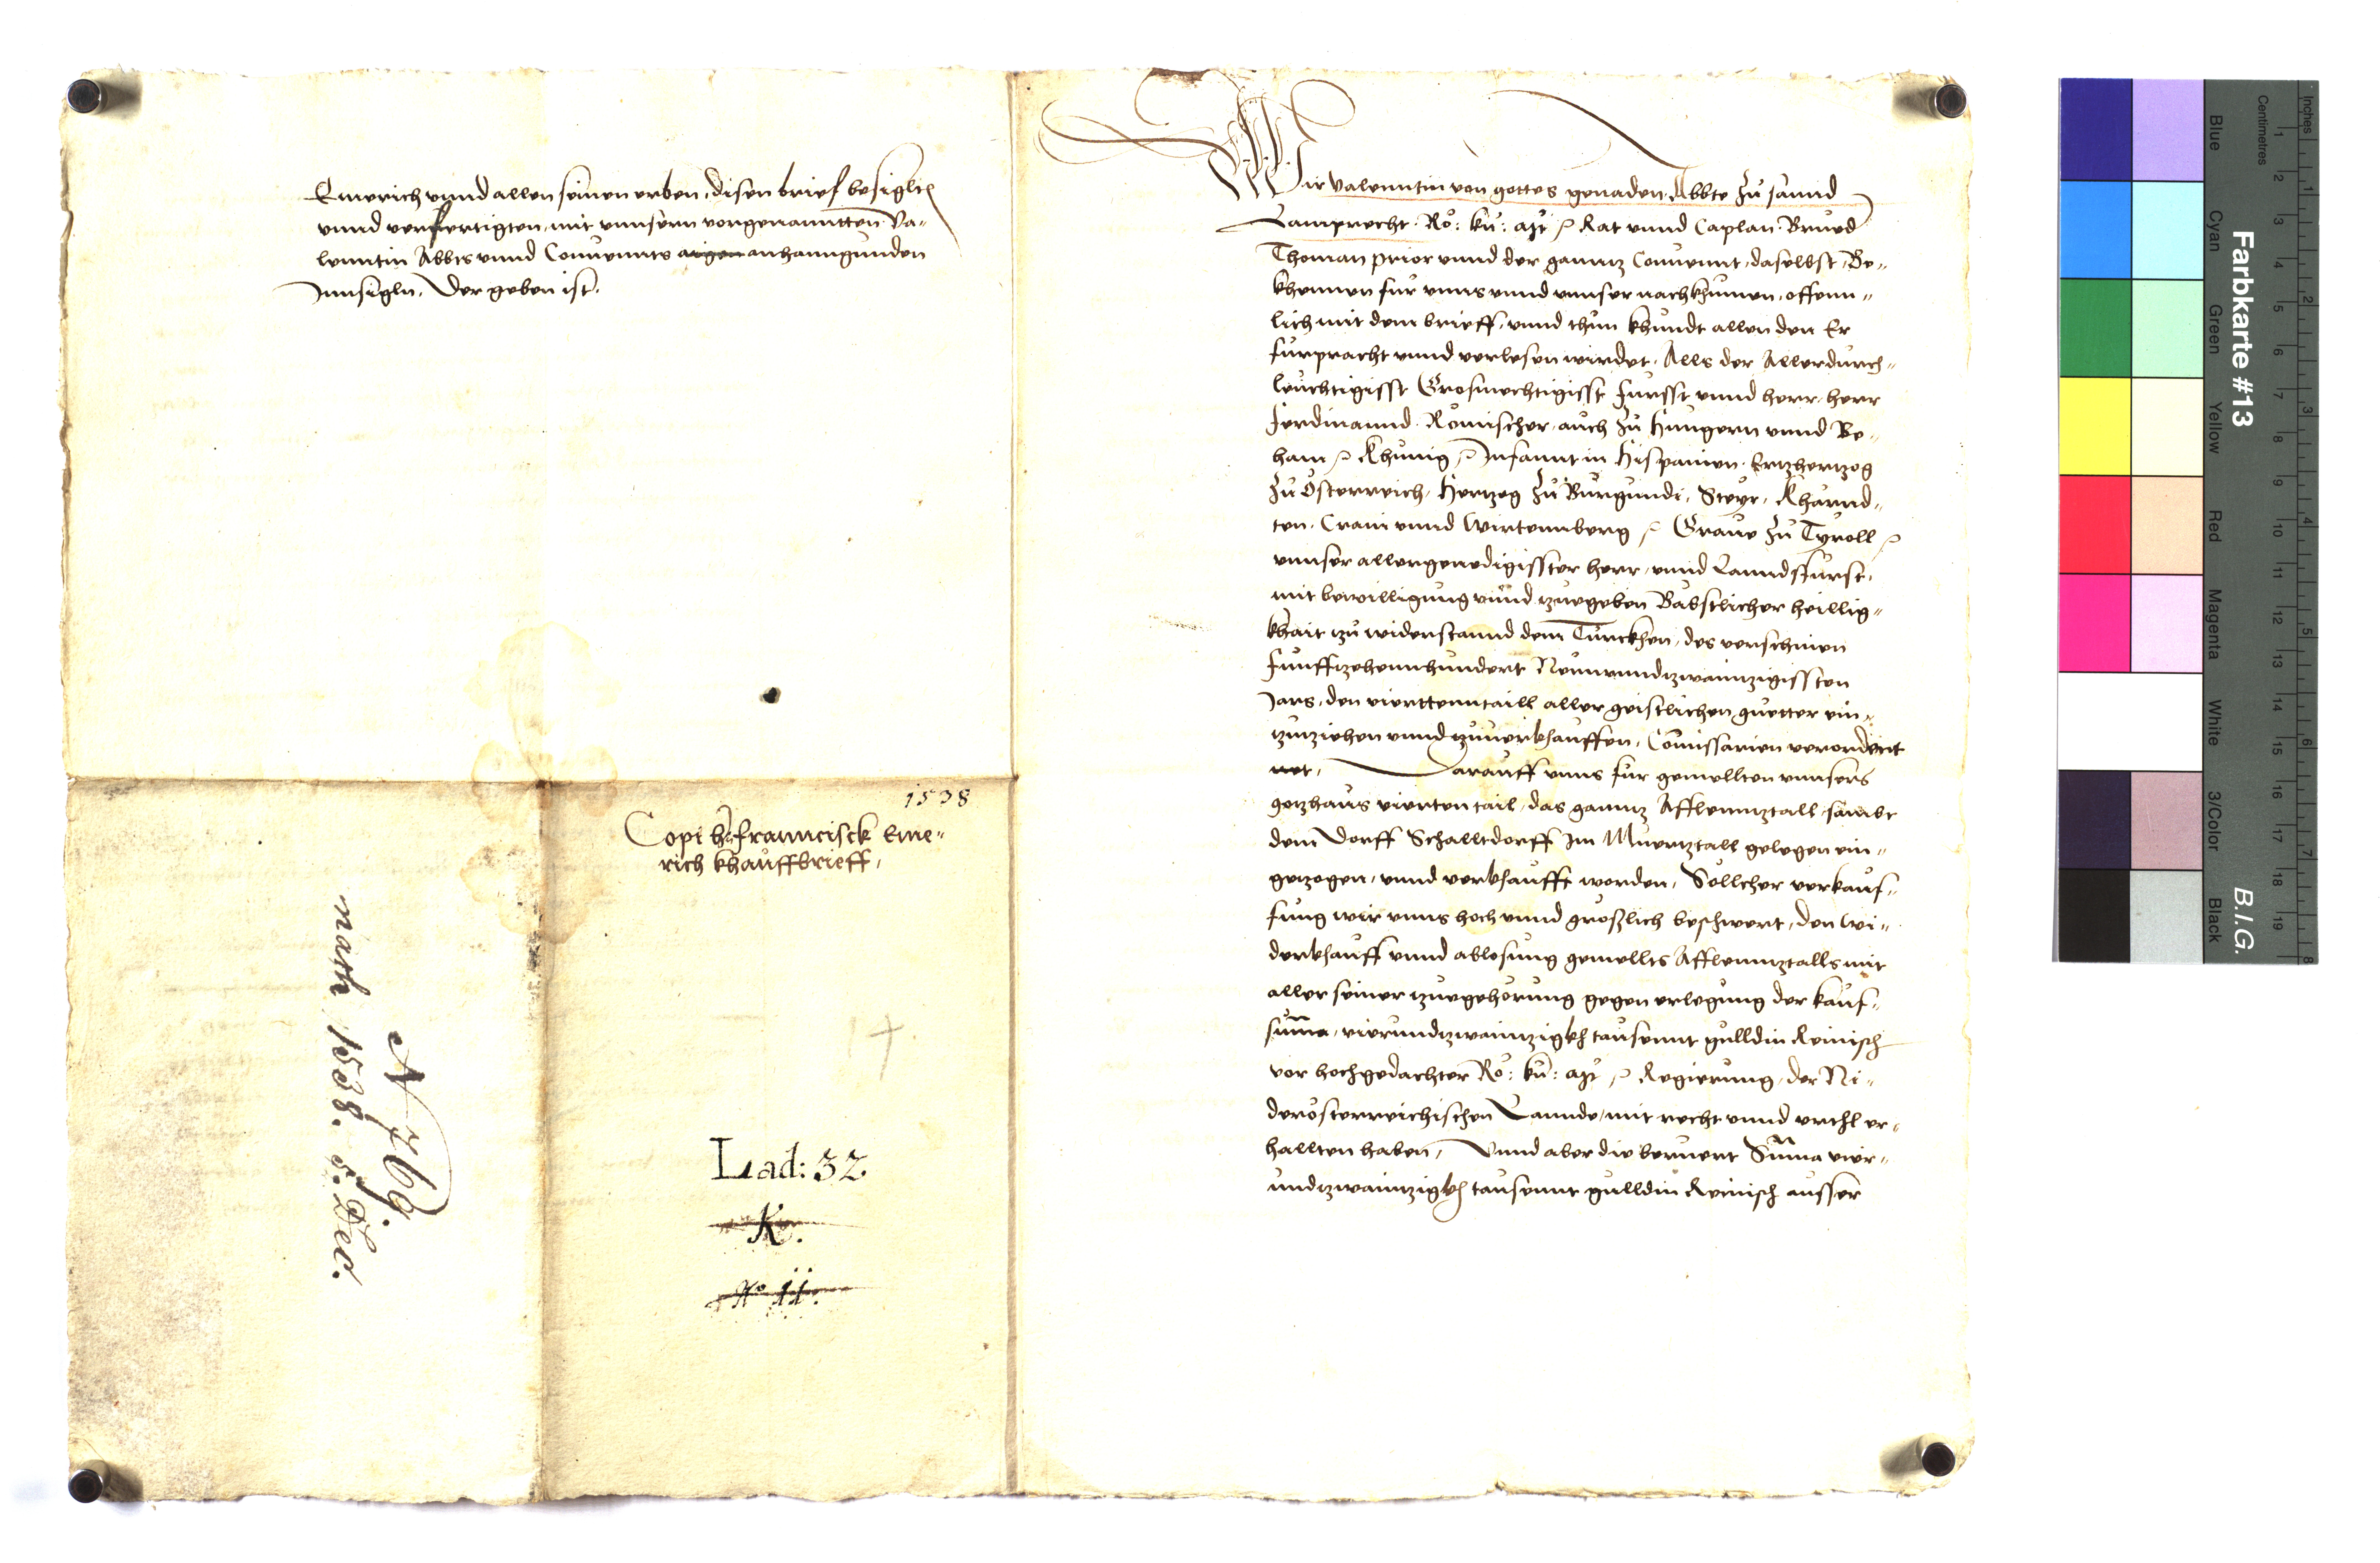 Emerich vnnd allen seinen erben, disen brief besiglten
vnnd verfertigten, mit vnnsern vorgenanntten Va-
lenntin Abbts vnnd Conuennts aigen anhanngunden
Innsigln. Der geben ist.
1538
Copi h franncisck Eme-
rich khauffbrieff,
Lad: 32
K.
No 11.
N 769.
nach 1538. 5. Dec.
Wir Valenntin von gottes genaden, Abbte zu sannd
Lamprecht. Rö: kü: Rat vnnd Caplan. Brued
Thoman prior vnnd der gannz Conuennt, daselbst, Be-
khennen fur vnns vnnd vnnser nachkhumen, offenn-
lich mit dem brieff, vnnd thun khundt allen den Er
furpracht vnnd verlesen wirdet. Alls der Allerdurch-
leuchtigisst Grosmechtigisst furst vnnd herr, herr
Ferdinannd. Römischer, auch zu Hungern vnnd Be-
ham Khunig Infannt in Hispanien. Ertzhertzog
zu Österreich, Hertzog zu Burgundi, Steyr, Kharnd-
ten. Crain vnnd Wirtennberg Graue zu Tyroll
vnnser allergenedigisster herr, vnnd Lanndsfurst,
mit bewilligung vnnd zuegeben Babstlicher heillig-
khait zu widerstannd dem Turckhen, des verschinen
funffzehennhundert Neunvnndzwainzigissten
Jars, den vierttenntaill aller geistlichen guetter ein-
zuziehen vnnd zuuerkhauffen, Comissarien verordent
net, Darauff vnns fur gemellten vnnsers
gozhaus vierten tail, das gannz Afflennztall sambt
dem Dorff Schalltdorff Im Muertztall gelegen ein-
getzogen, vnnd verkhaufft worden, Söllcher verkauf-
fung wir vnns hoch vnnd größlich beschwert, den wi-
derkhauff vnnd ablosung gemellts Afflennztalls mit
aller seiner zuegehörung gegen erlegung der kauf-
suma, vierundzwainzigkh tausennt gulldin Reinisch
vor hochgedachter Rö: kü: Regierung, der Ni-
derösterreichischen Lannde, mit recht vnnd vrthl er-
hallten haben, Vnnd aber die beruert Suma vier-
undzwainzigkh tausennt gulldin Reinisch ausser
Farbkarte #13
B.I.G.
Inches
Centimetres
Blue
Cyan
Green
Yellow
Red
Magenta
White
3/Color
Black
1 2 3 4 5 6 7 8 9 10 11 12 13 14 15 16 17 18 19
1 2 3 4 5 6 7 8